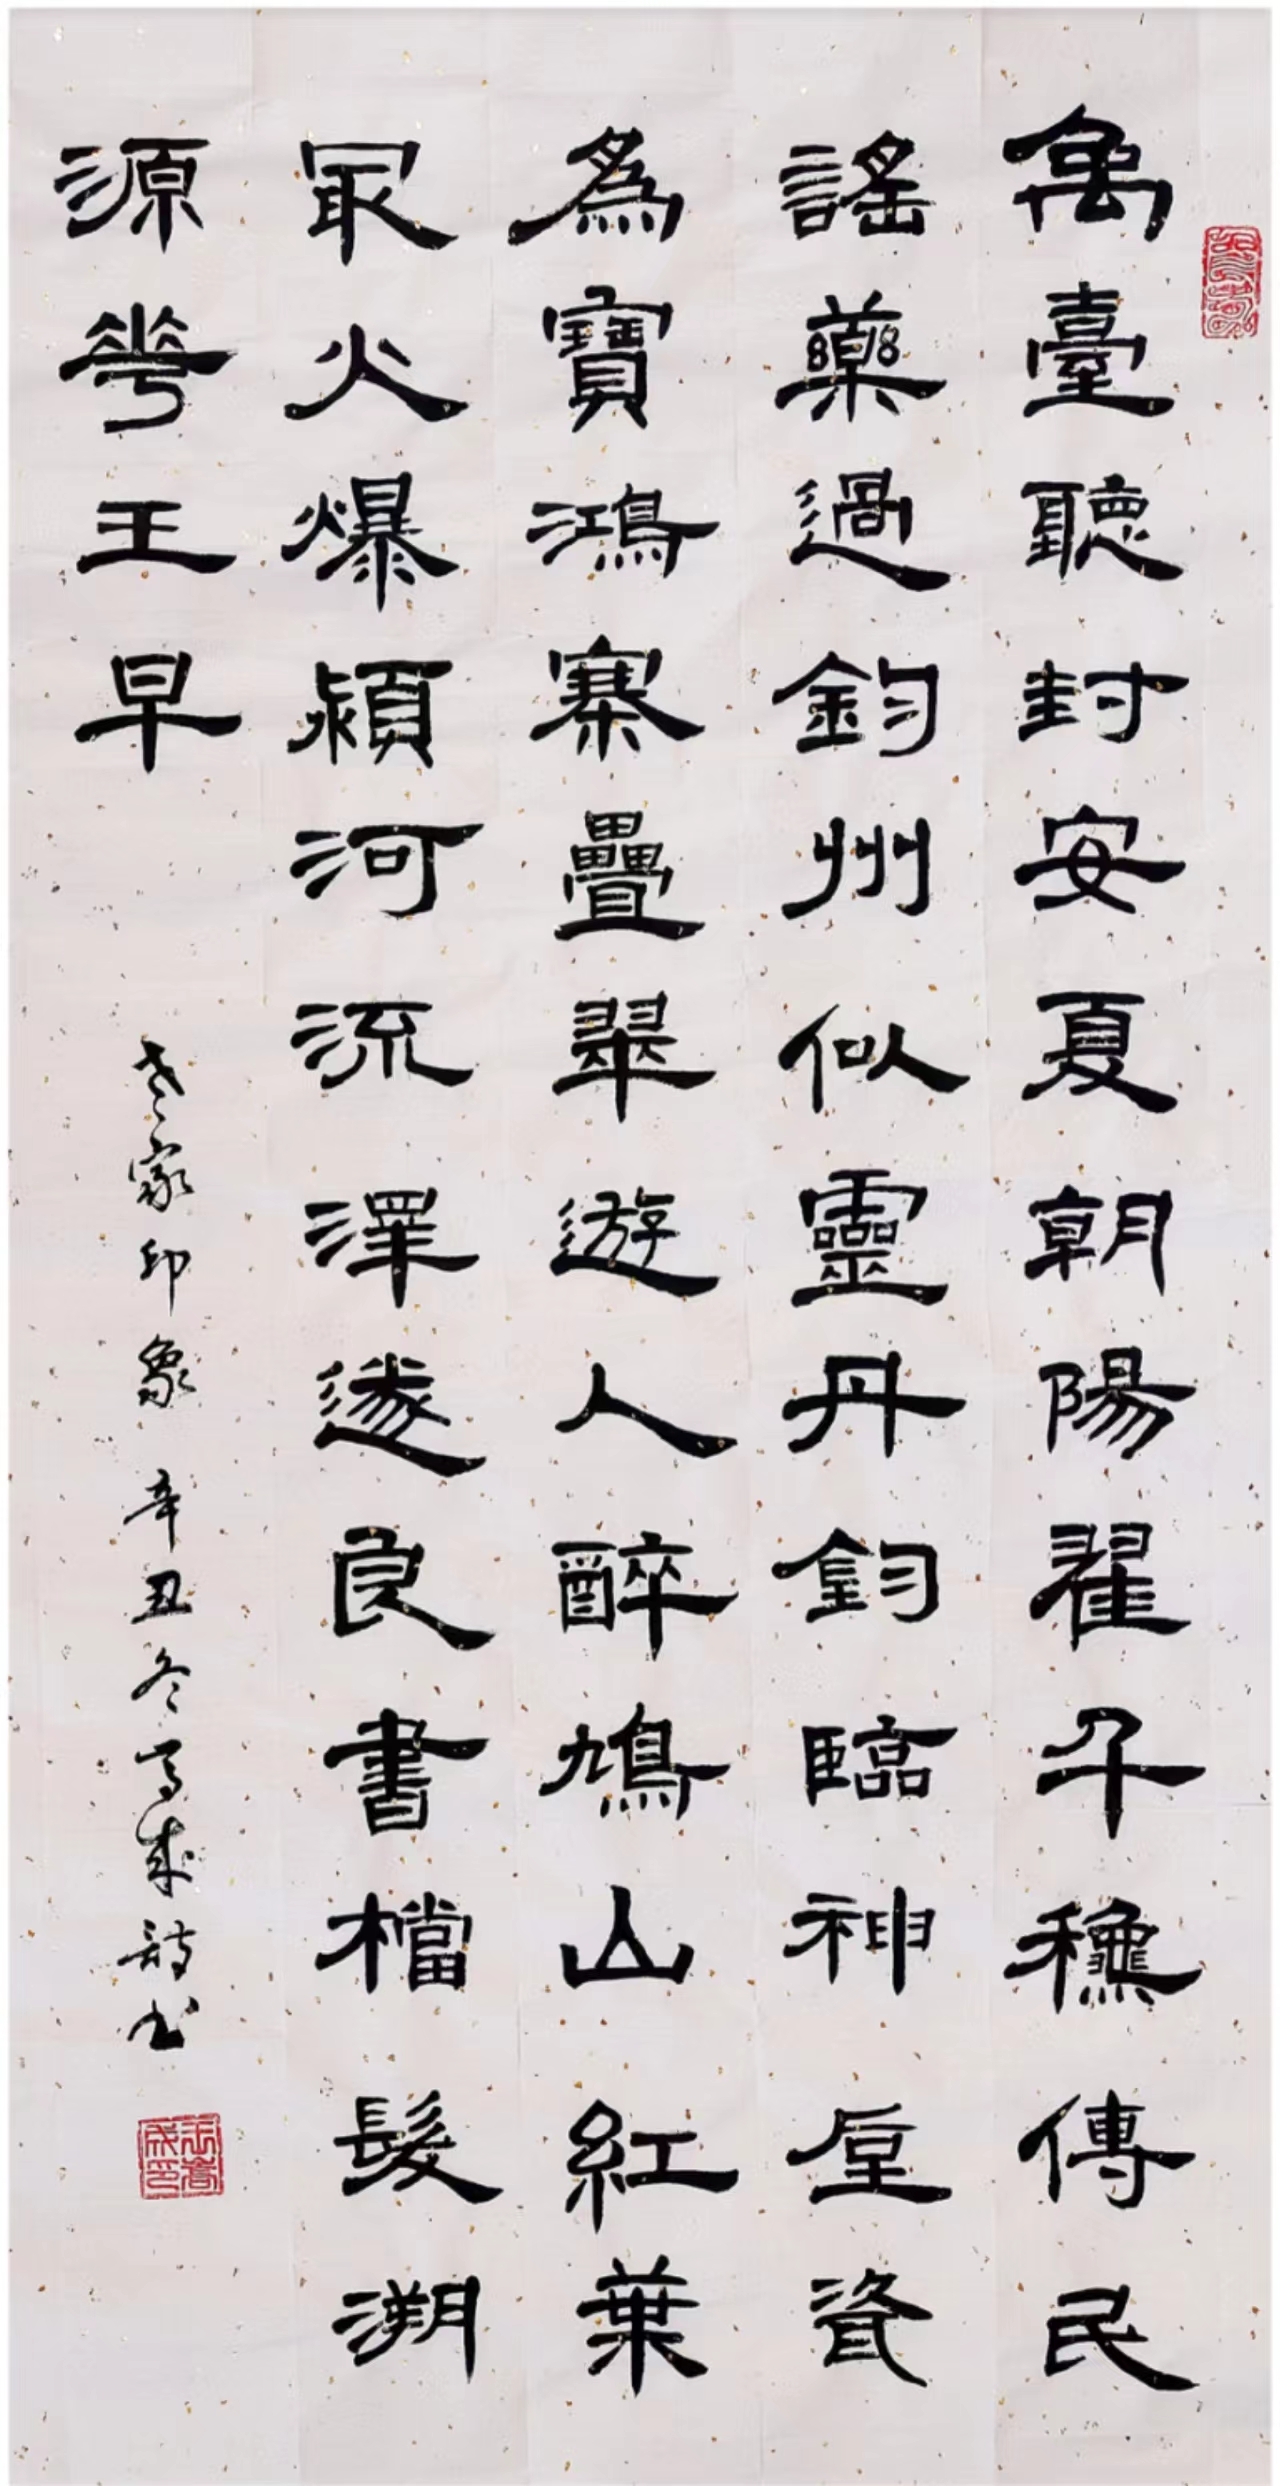 禹臺聽封安夏朝陽翟千穐傳民
謠藥過鈞州似靈丹鈞臨神垕瓷
為寶鴻寨疊翠遊人醉鳩山紅葉
最火爆潁河流澤遂良書檔髮溯
源華王早
老家印象 辛丑冬高成詩書